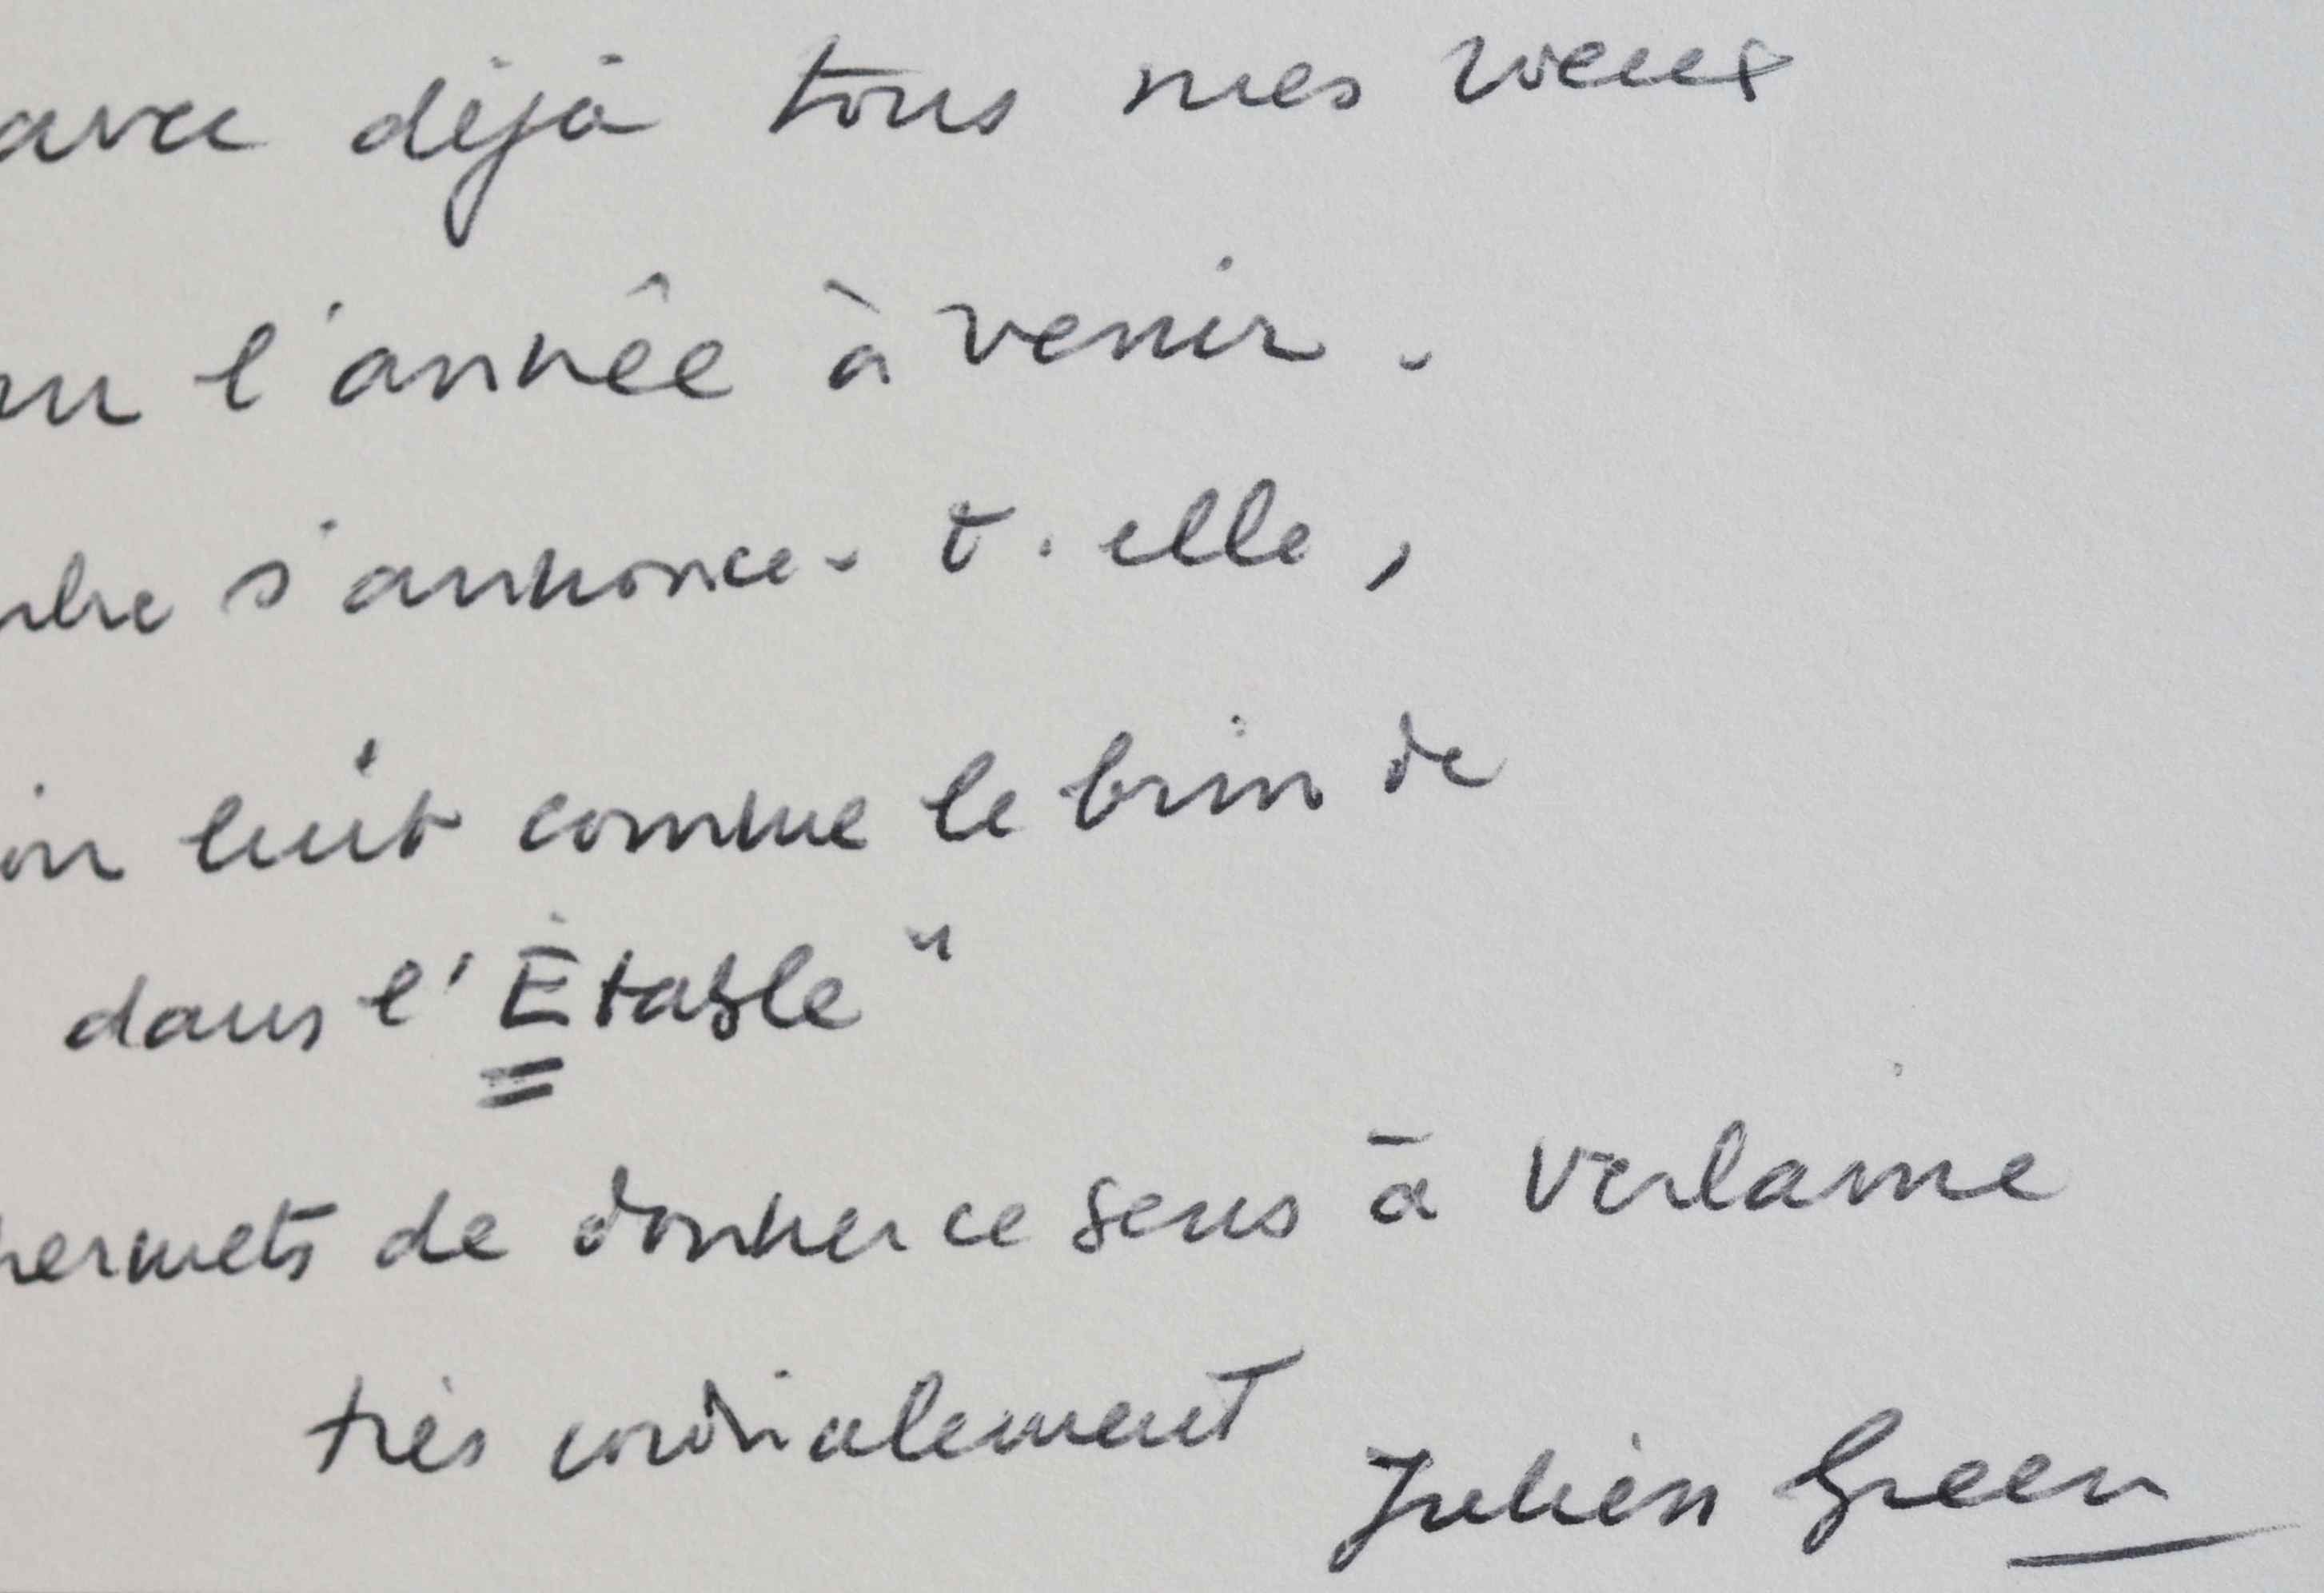 avec déjà tous mes vœux
l'année à venir.
s'annonce-t-elle,
luit comme le brin de
dans l'Étable"
permets de donner ce sens à Verlaine
très cordialement
Julien Green